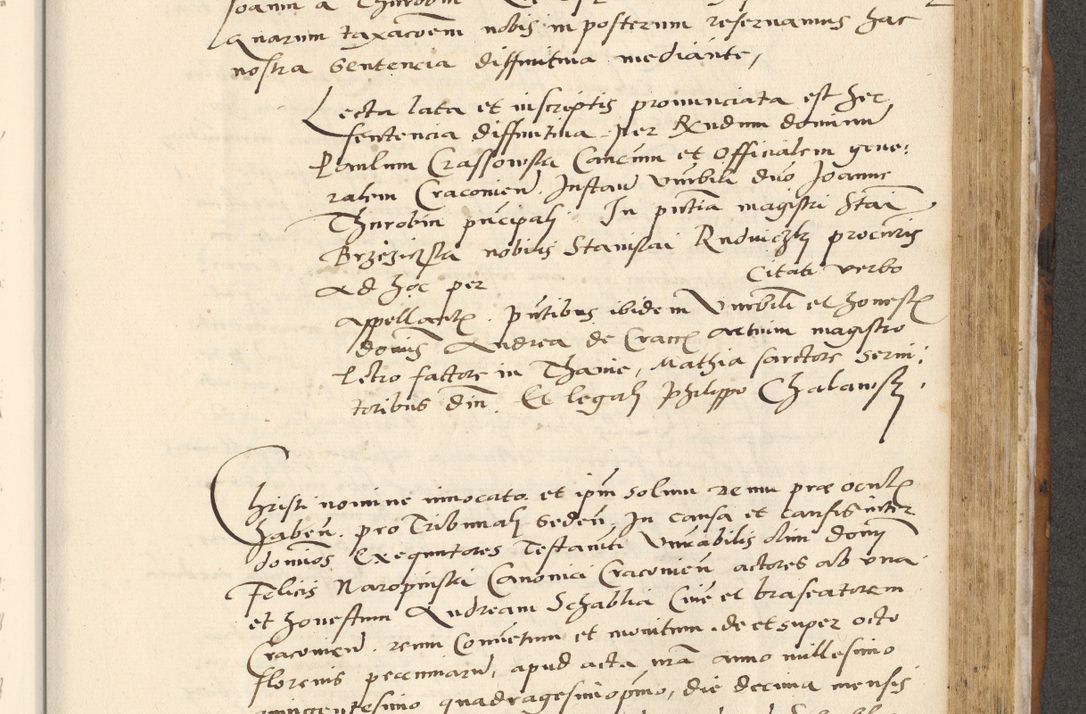 Joanni a Thurobin
quarum taxacoem nobis in posterum reservamus hac
nostra Sentencia diffinitiva mediante,
Lecta lata et inscriptis pronunciata est hec
sententia diffinitiva per Rndum dominum
Paulum Crassowski Cancum et Officialem gene:
ralem Cracovien. Instan Vnrbili dno Joanne
Thurobin pncipali In pntia magistri Stai
Brzeziczki nobilis Stanislai Rudniczki procuris
Ad hoc per Citati verbo
appellante. Pntibus ibidem Vnrbili et honestis
dominis Andrea de Cracov artium magistro
Petro factore in Thanie, Mathia sartore servi:
toribus dni. Et legali Philippo Chalawski.
Christi nomine invocato et ipm solum deum præ oculis
haben. pro Tribunali Seden, In causa et causis inter
dominos Exequutores Testamti Vnrabilis olim domini
Felicis Naropinski Canonici Cracovien actores ab vna
et honestum Andream Schablia Civem et braseatorem
Cracovien. reum Conventum et monitum. de et super octo
florenis pecuniarum, apud acta nra anno millesimo
quingentesimo quadragesimo primo, die decima mensis